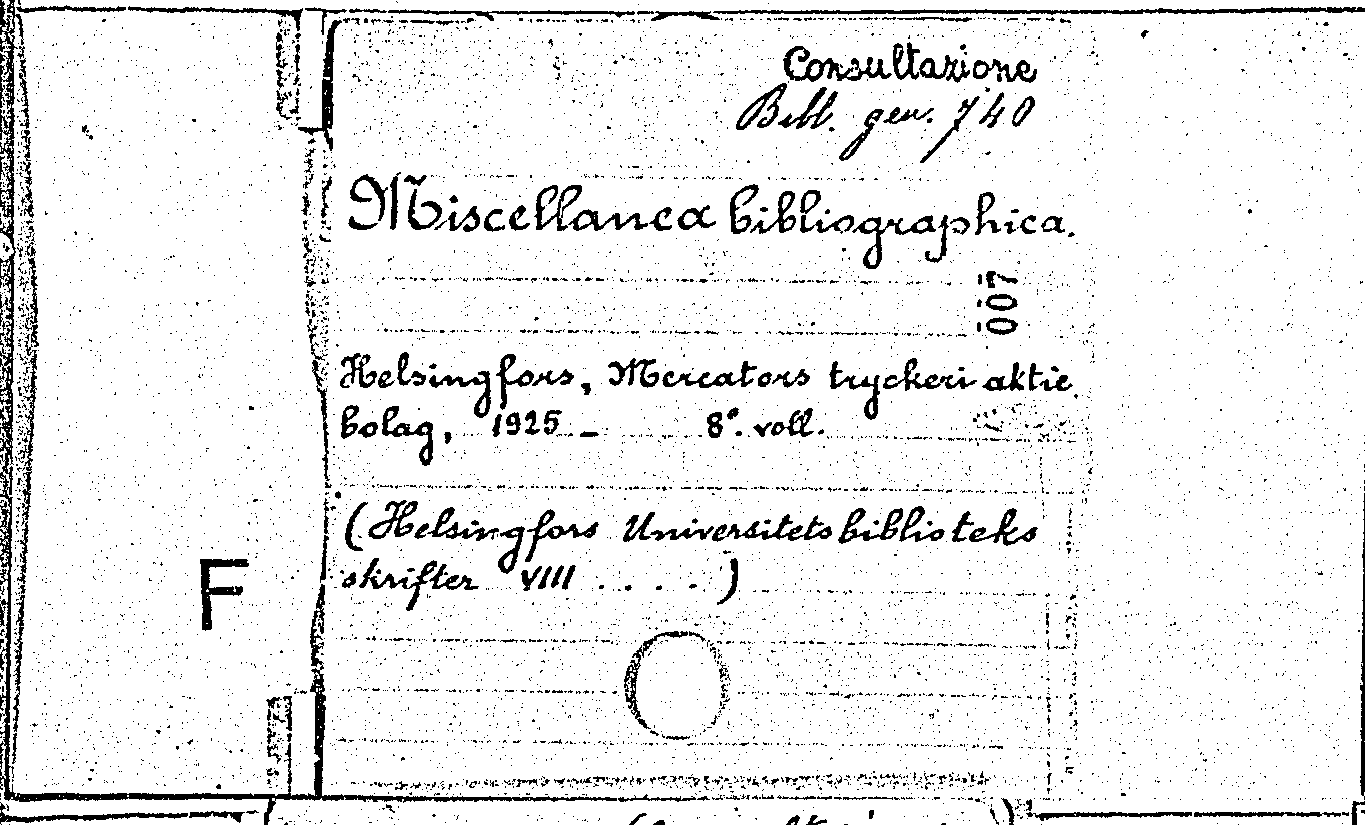 Consultazione
Bibl. gen. 740
Miscellanea bibliographica.
007
Helsingfors, Mercators tryckeri aktie
bolag, 1925 - 8°. voll.
(Helsingfors Universitetsbiblioteks
skrifter VIII . . . . )
F